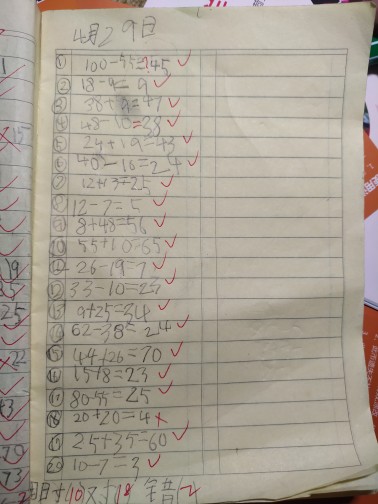 4月29日
① 100-55=45
② 18-9=9
③ 38+9=47
④ 48-10=38
⑤ 24+19=43
⑥ 40-16=24
⑦ 12+13=25
⑧ 12-7=5
⑨ 8+48=56
⑩ 55+10=65
⑪ 26-19=7
⑫ 33-10=23
⑬ 9+25=34
⑭ 62-38=24
⑮ 44+26=70
⑯ 15+8=23
⑰ 80-55=25
⑱ 20+20=4
⑲ 25+35=60
⑳ 10-7=3